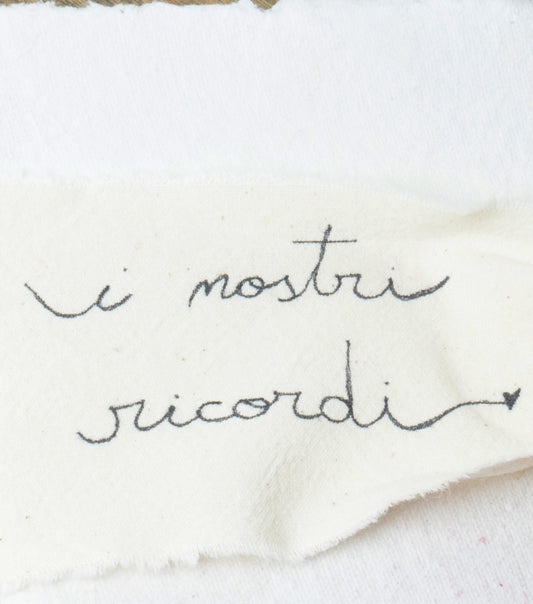 i nostri
ricordi